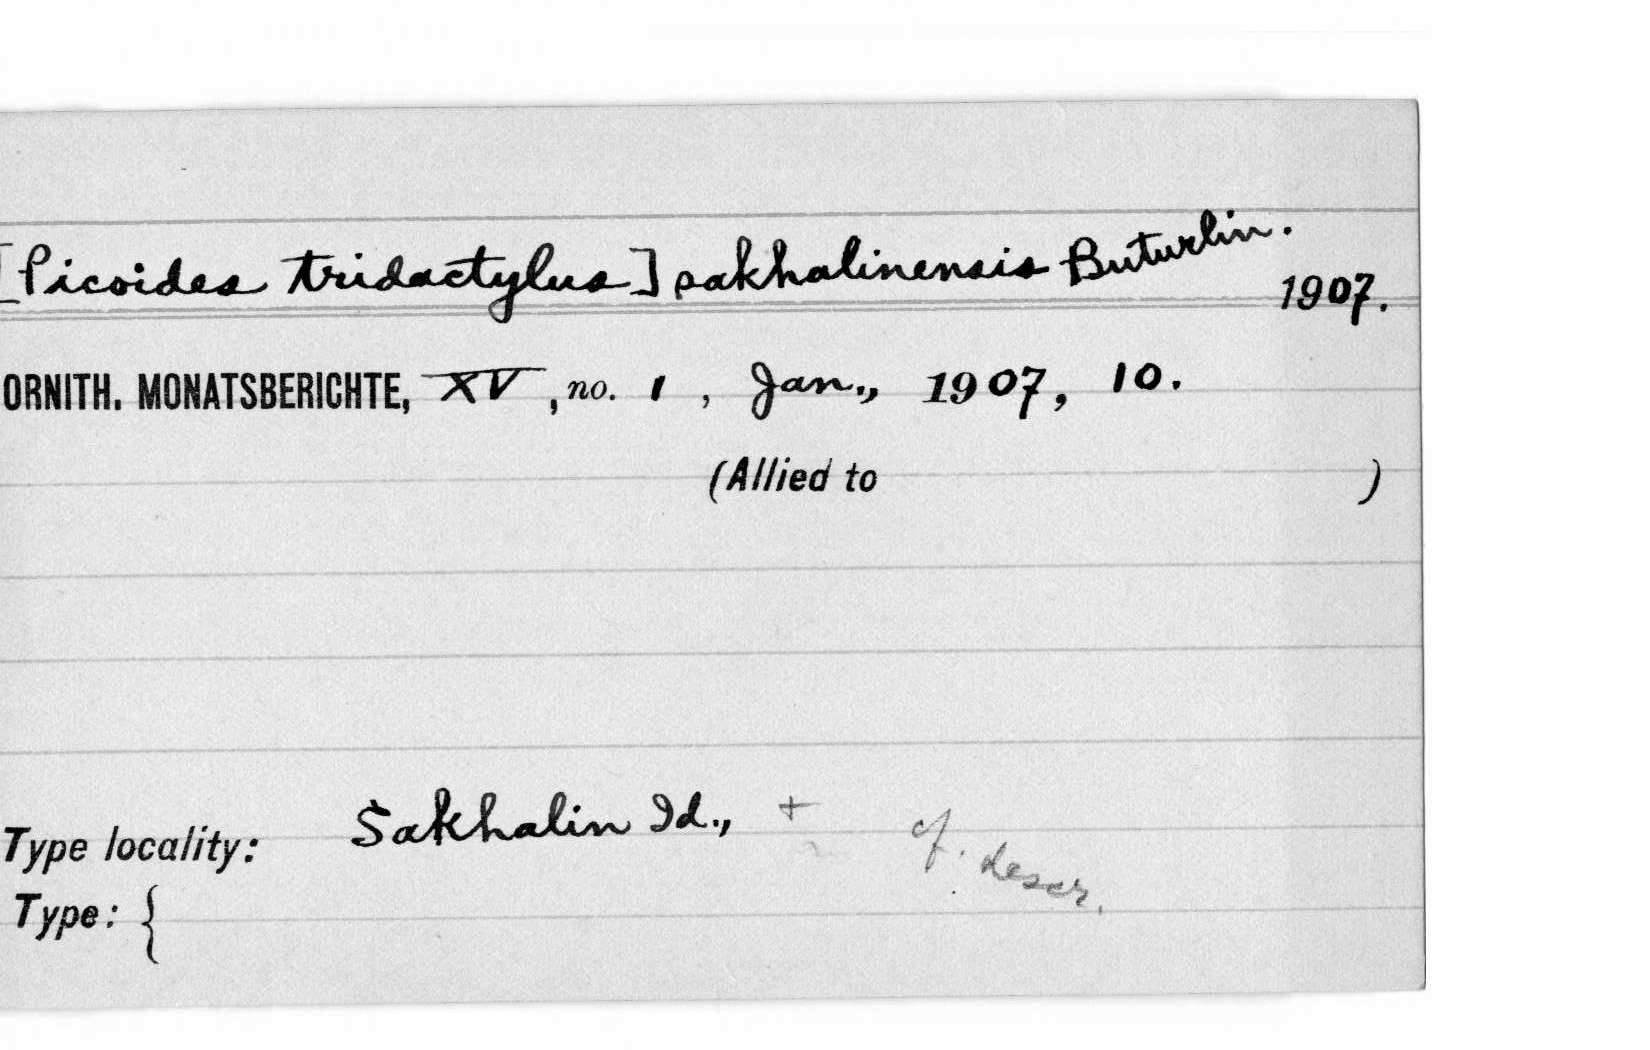 [Picoides tridactylus] sakhalinensis Buturlin.
1907.
ORNITH. MONATSBERICHTE, XV, no. 1, Jan., 1907, 10.
(Allied to )
Type locality: Sakhalin Id., + cf. descr.
Type: {